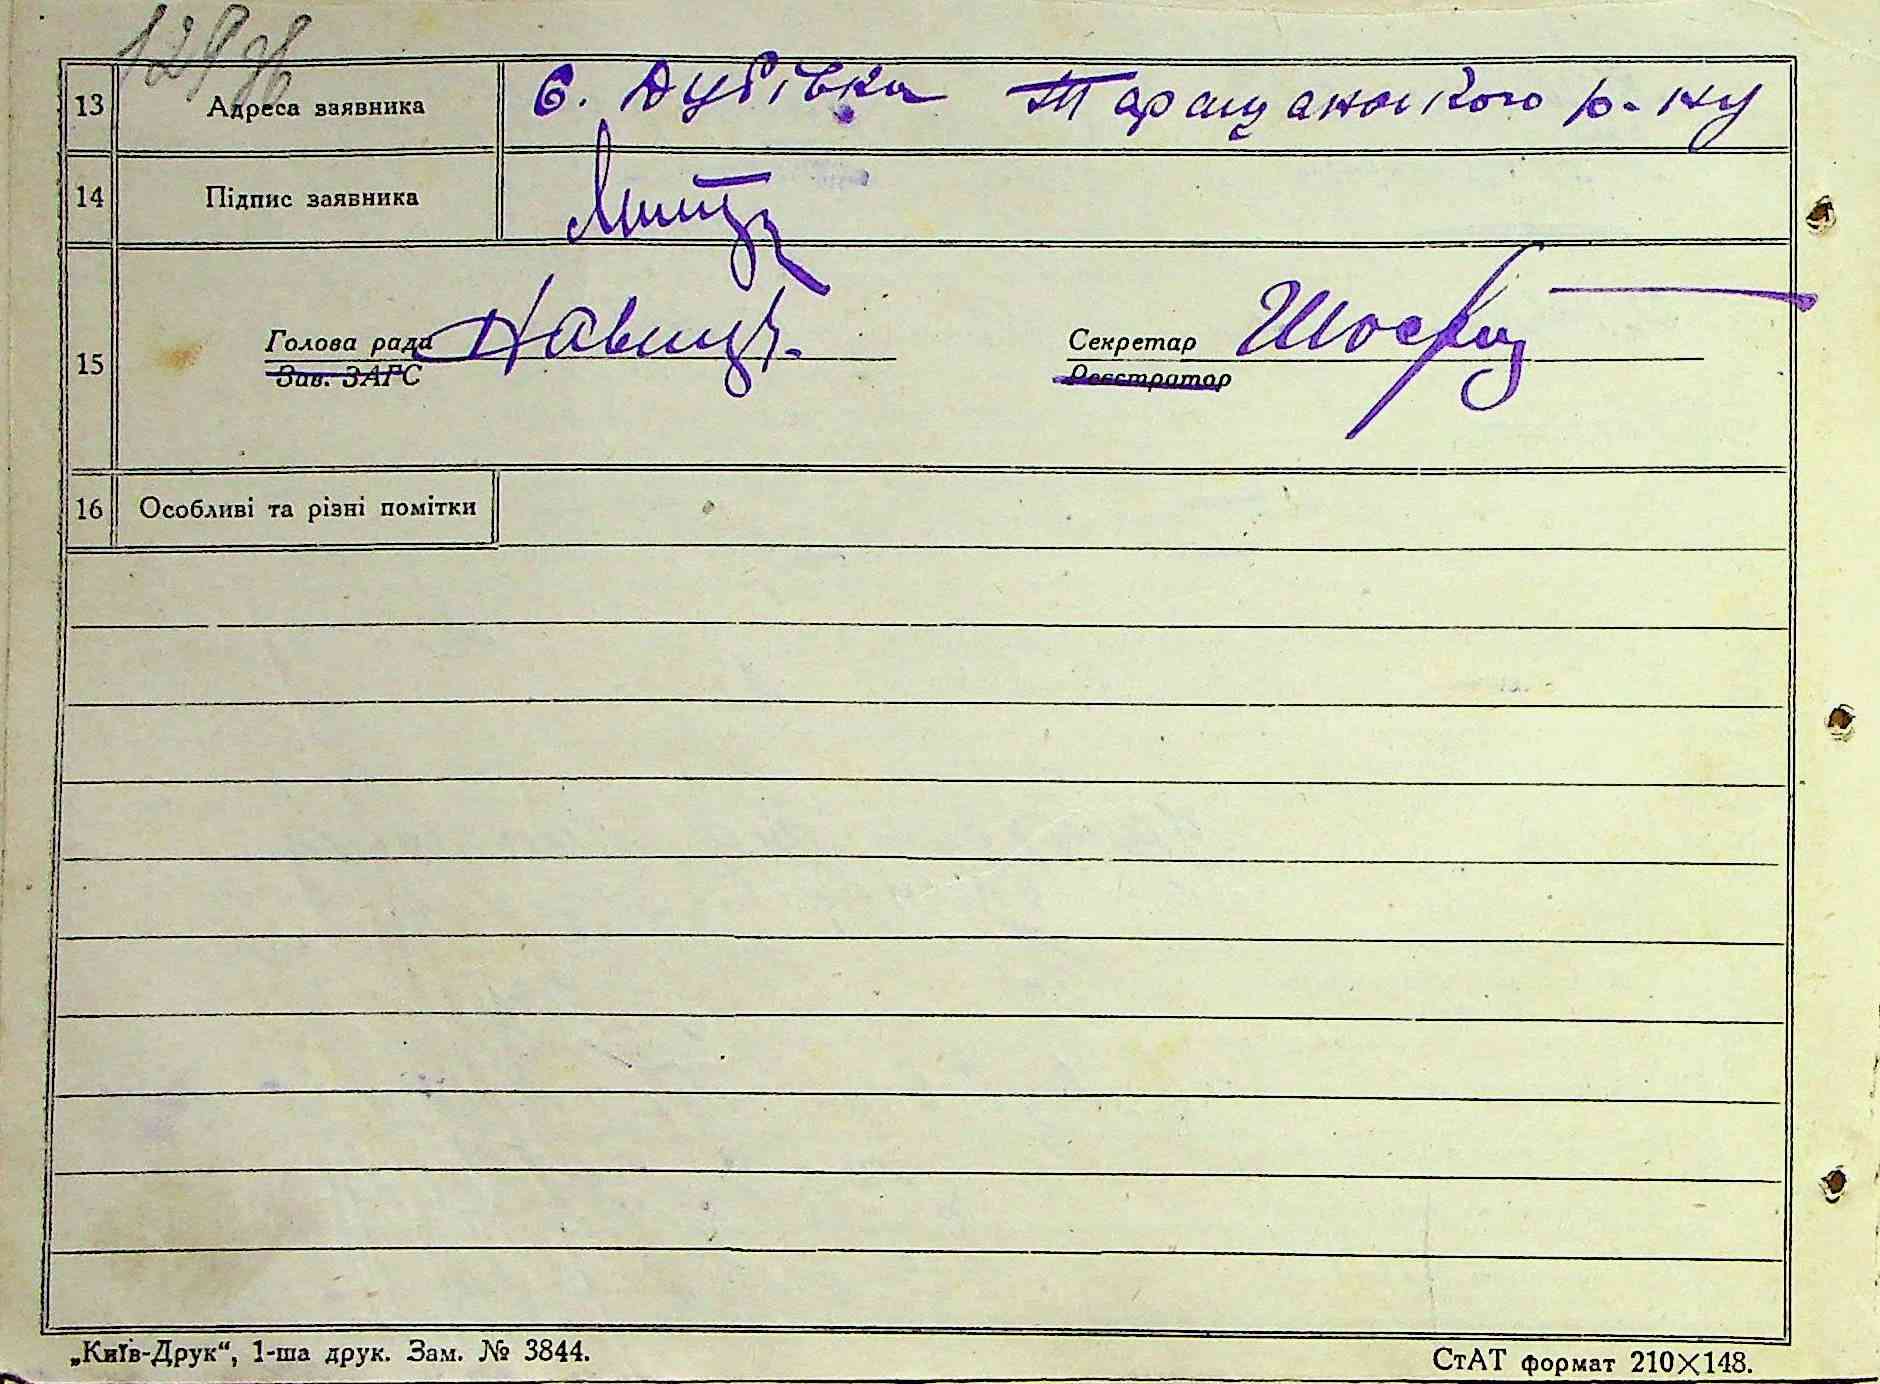 13 Адреса заявника с. Дубівка Таращанського р-ну
14 Підпис заявника
15 Голова ради Секретар
Зав. ЗАГС Реєстратор
16 Особливі та різні помітки
„Київ-Друк“, 1-ша друк. Зам. № 3844. СтАТ формат 210×148.